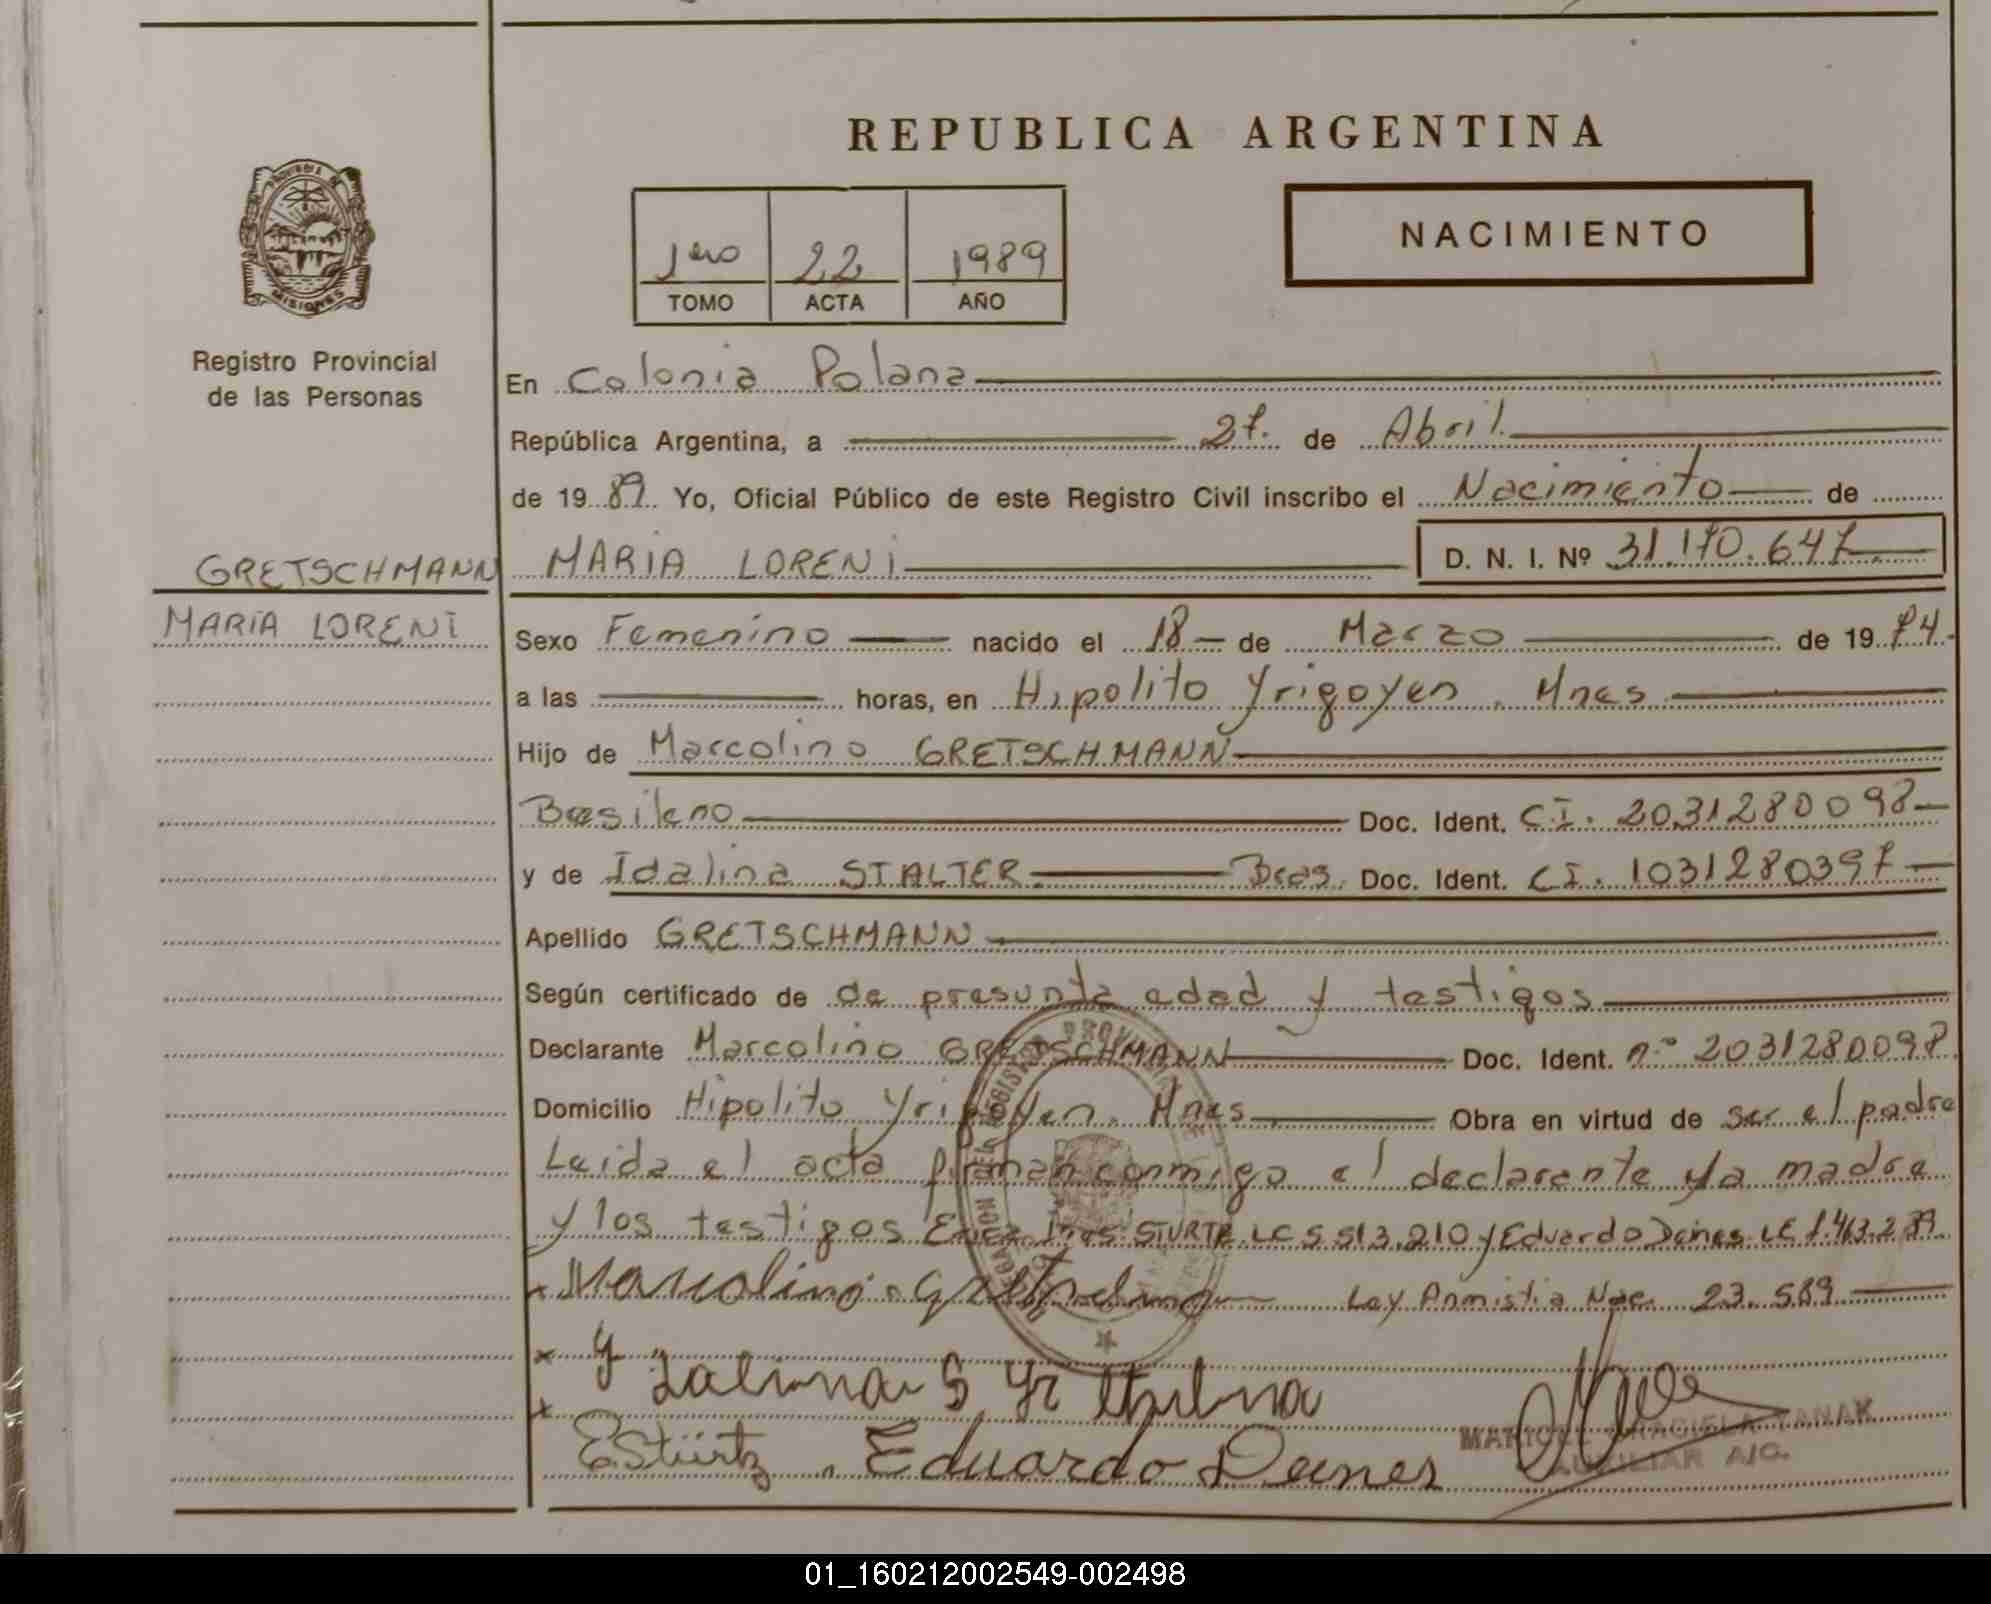 REPUBLICA ARGENTINA
NACIMIENTO
1ero 22 1989
TOMO ACTA AÑO
PROVINCIA DE
MISIONES
Registro Provincial
de las Personas
En Colonia Polana
República Argentina, a 27. de Abril
de 1989. Yo, Oficial Público de este Registro Civil inscribo el Nacimiento de
GRETSCHMANN MARIA LORENI D. N. I. Nº 31.170.647
MARIA LORENI
Sexo Femenino nacido el 18 de Marzo de 1974.
a las horas, en Hipolito Yrigoyen, Mnes
Hijo de Marcolino GRETSCHMANN
Brasileno Doc. Ident. C.I. 2031280098
y de Idalina STALTER Bras. Doc. Ident. C.I. 1031280397
Apellido GRETSCHMANN
Según certificado de de presunta edad y testigos
Declarante Marcolino GRETSCHMANN Doc. Ident. n.º 2031280098
Domicilio Hipolito Yrigoyen, Mnes Obra en virtud de ser el padre
Leida el acta firman conmigo el declarante y la madre
y los testigos STURTZ LC 5.513.210 y Eduardo Deines LE 7.463.289
Marcolino Ley Amnistia Nac. 23.589
Idalina S
E Stürtz. Eduardo Deines
MARICEL GRACIELA TANAK
AUXILIAR A/C.
01_160212002549-002498